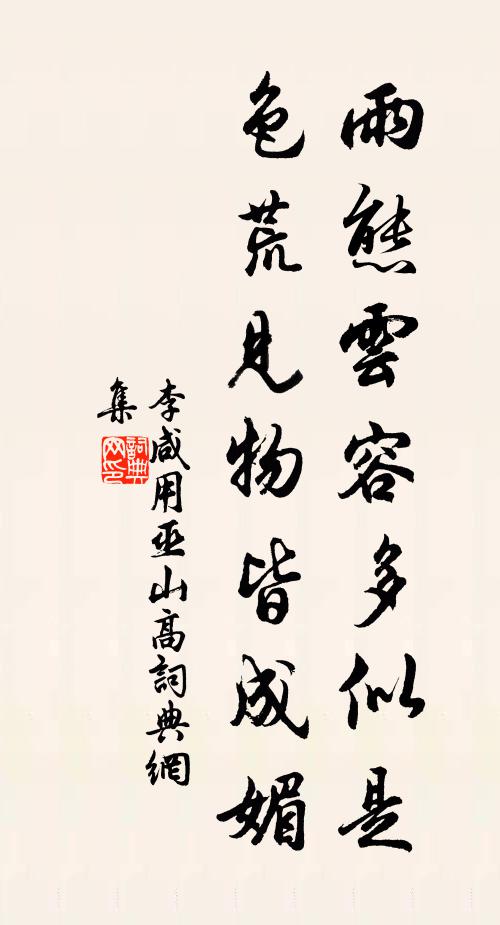 雨態雲容多似是
色荒見物皆成媚
李咸用巫山高詞典網
集
詞典网印